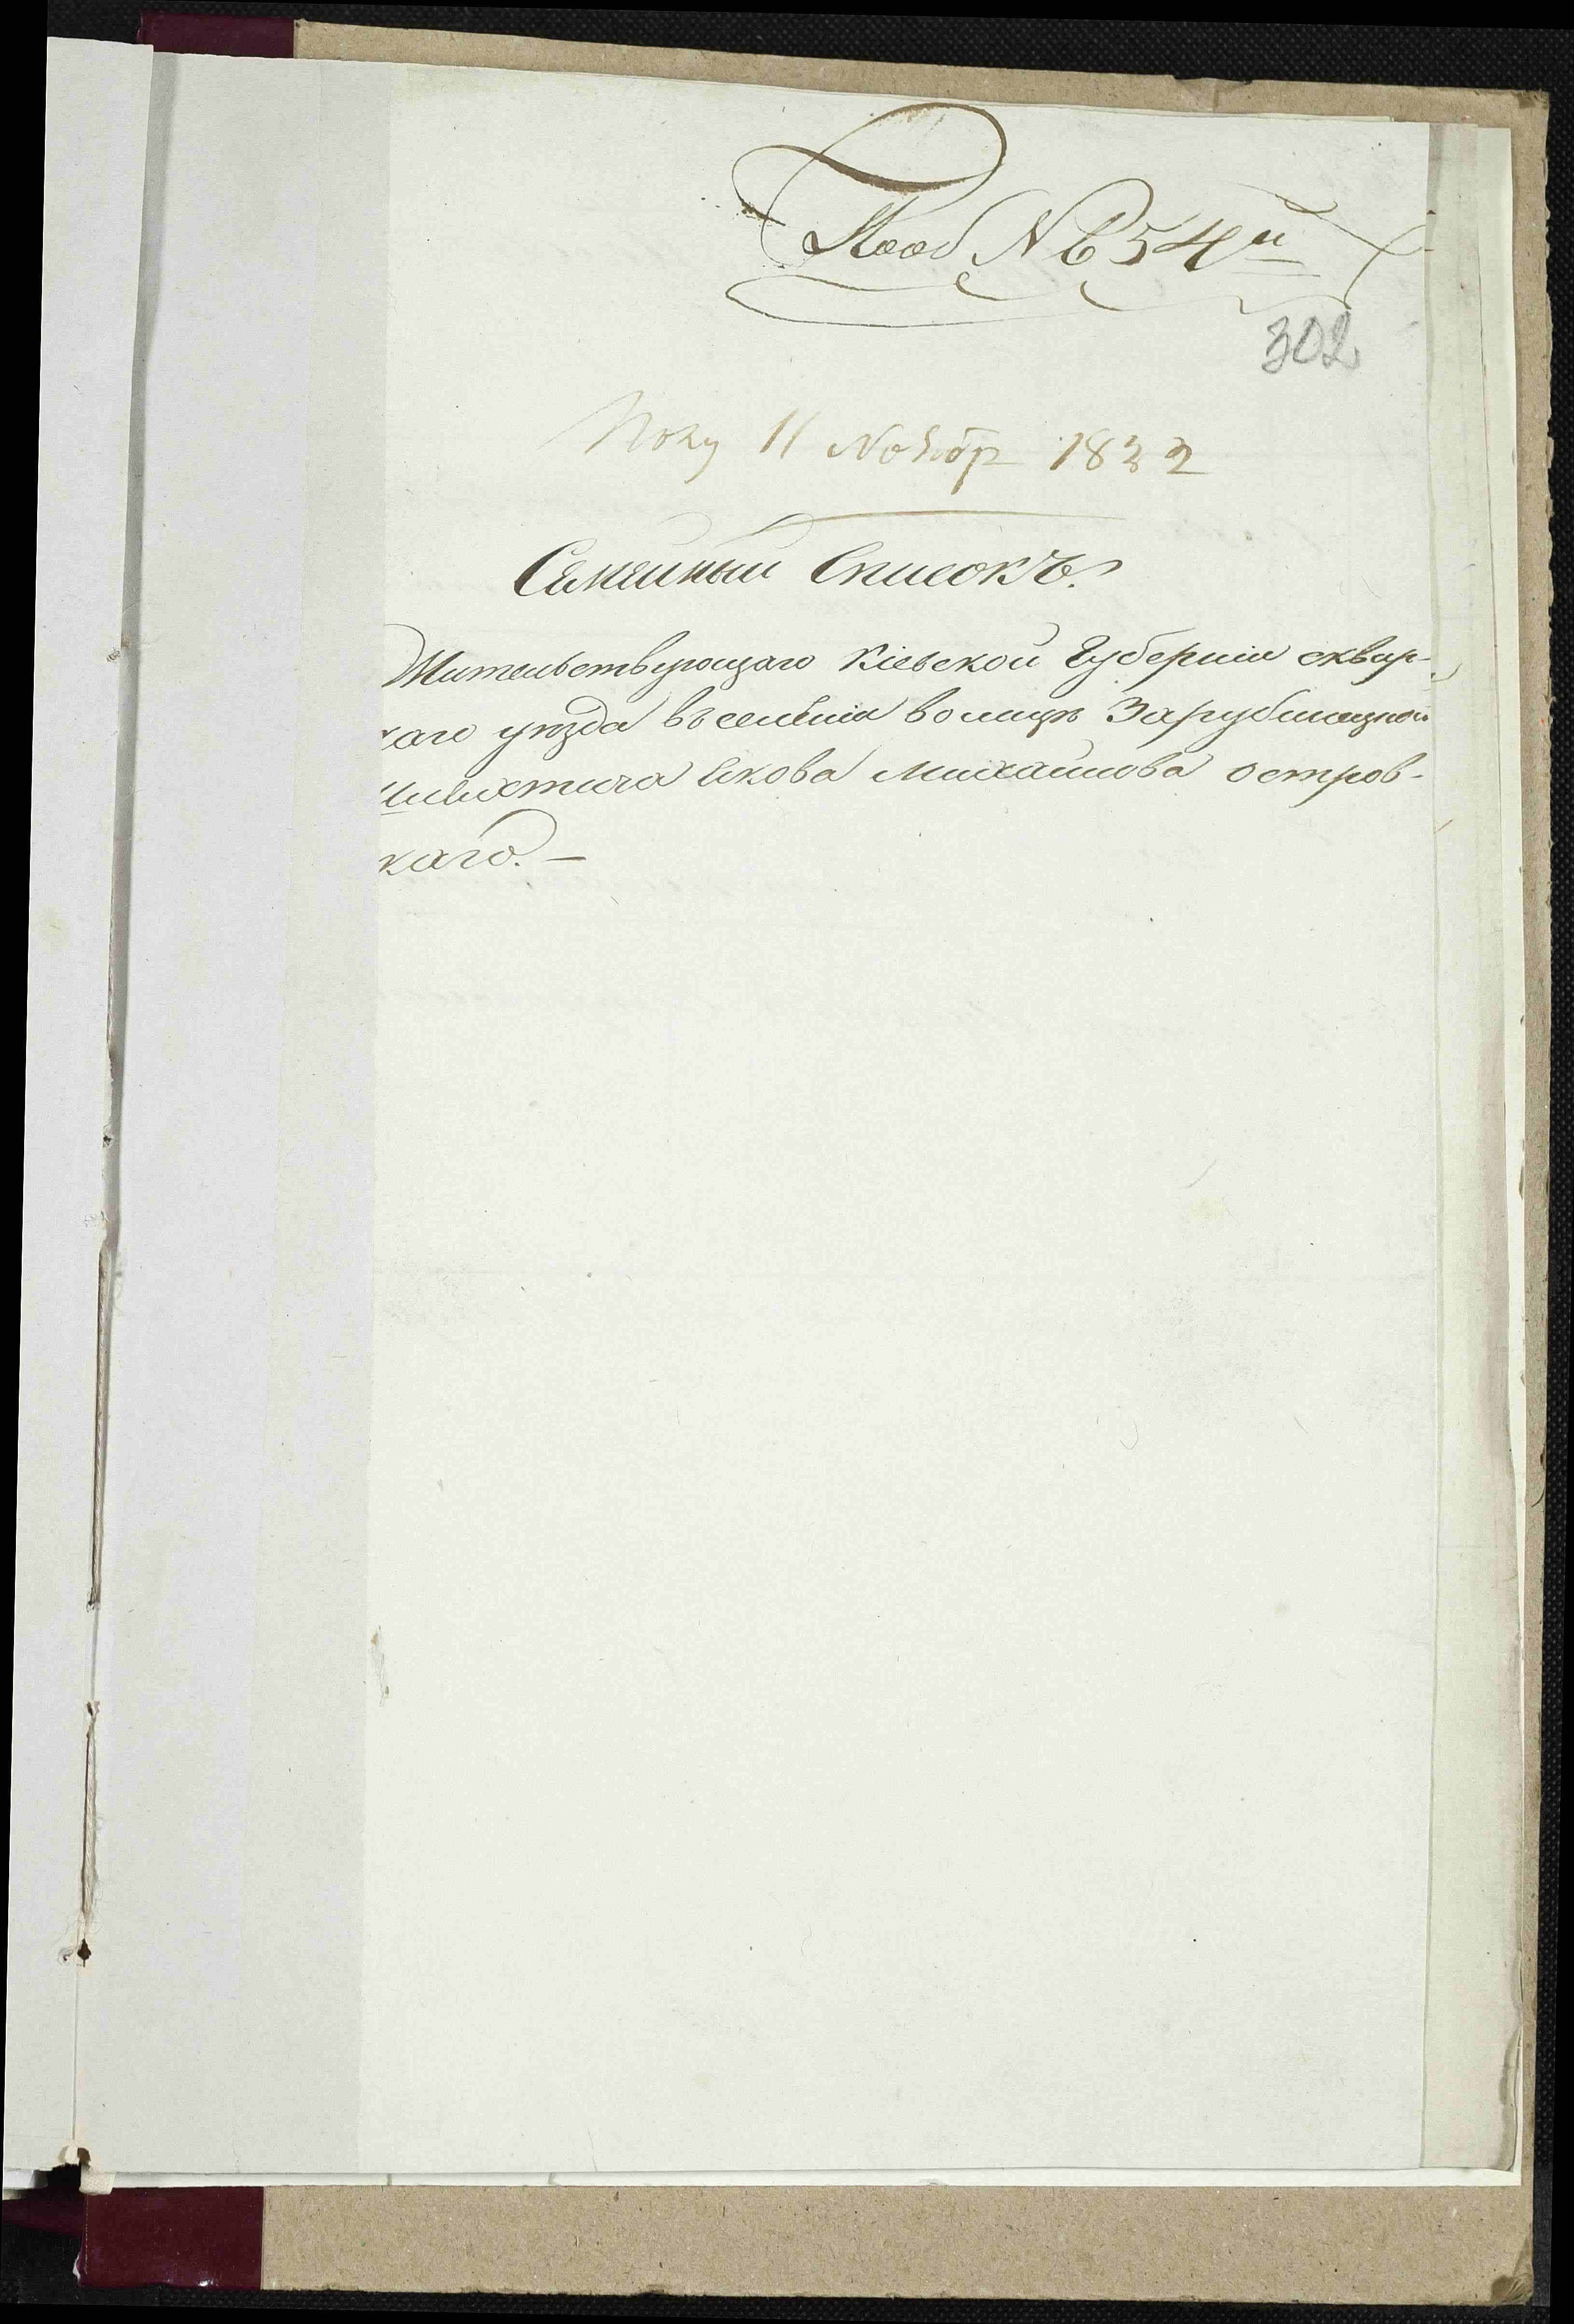 Под № 54й
302
Полу 11 Ноябр 1832
Семейный Списокъ.
Жительствующаго Кіевской Губерніи сквир-
каго уѣзда въ селеніи волицѣ Зарубинецкой
Шляхтича Якова Михайлова остров-
каго. —